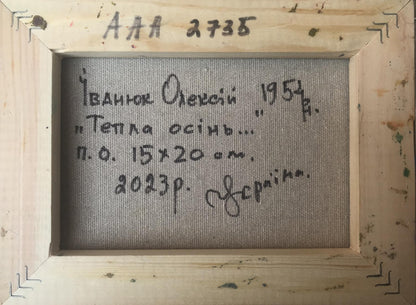 ААА 2735
Іванюк Олексій 1954 р.н.
"Тепла осінь..."
п.о. 15x20 см.
2023р. Україна.